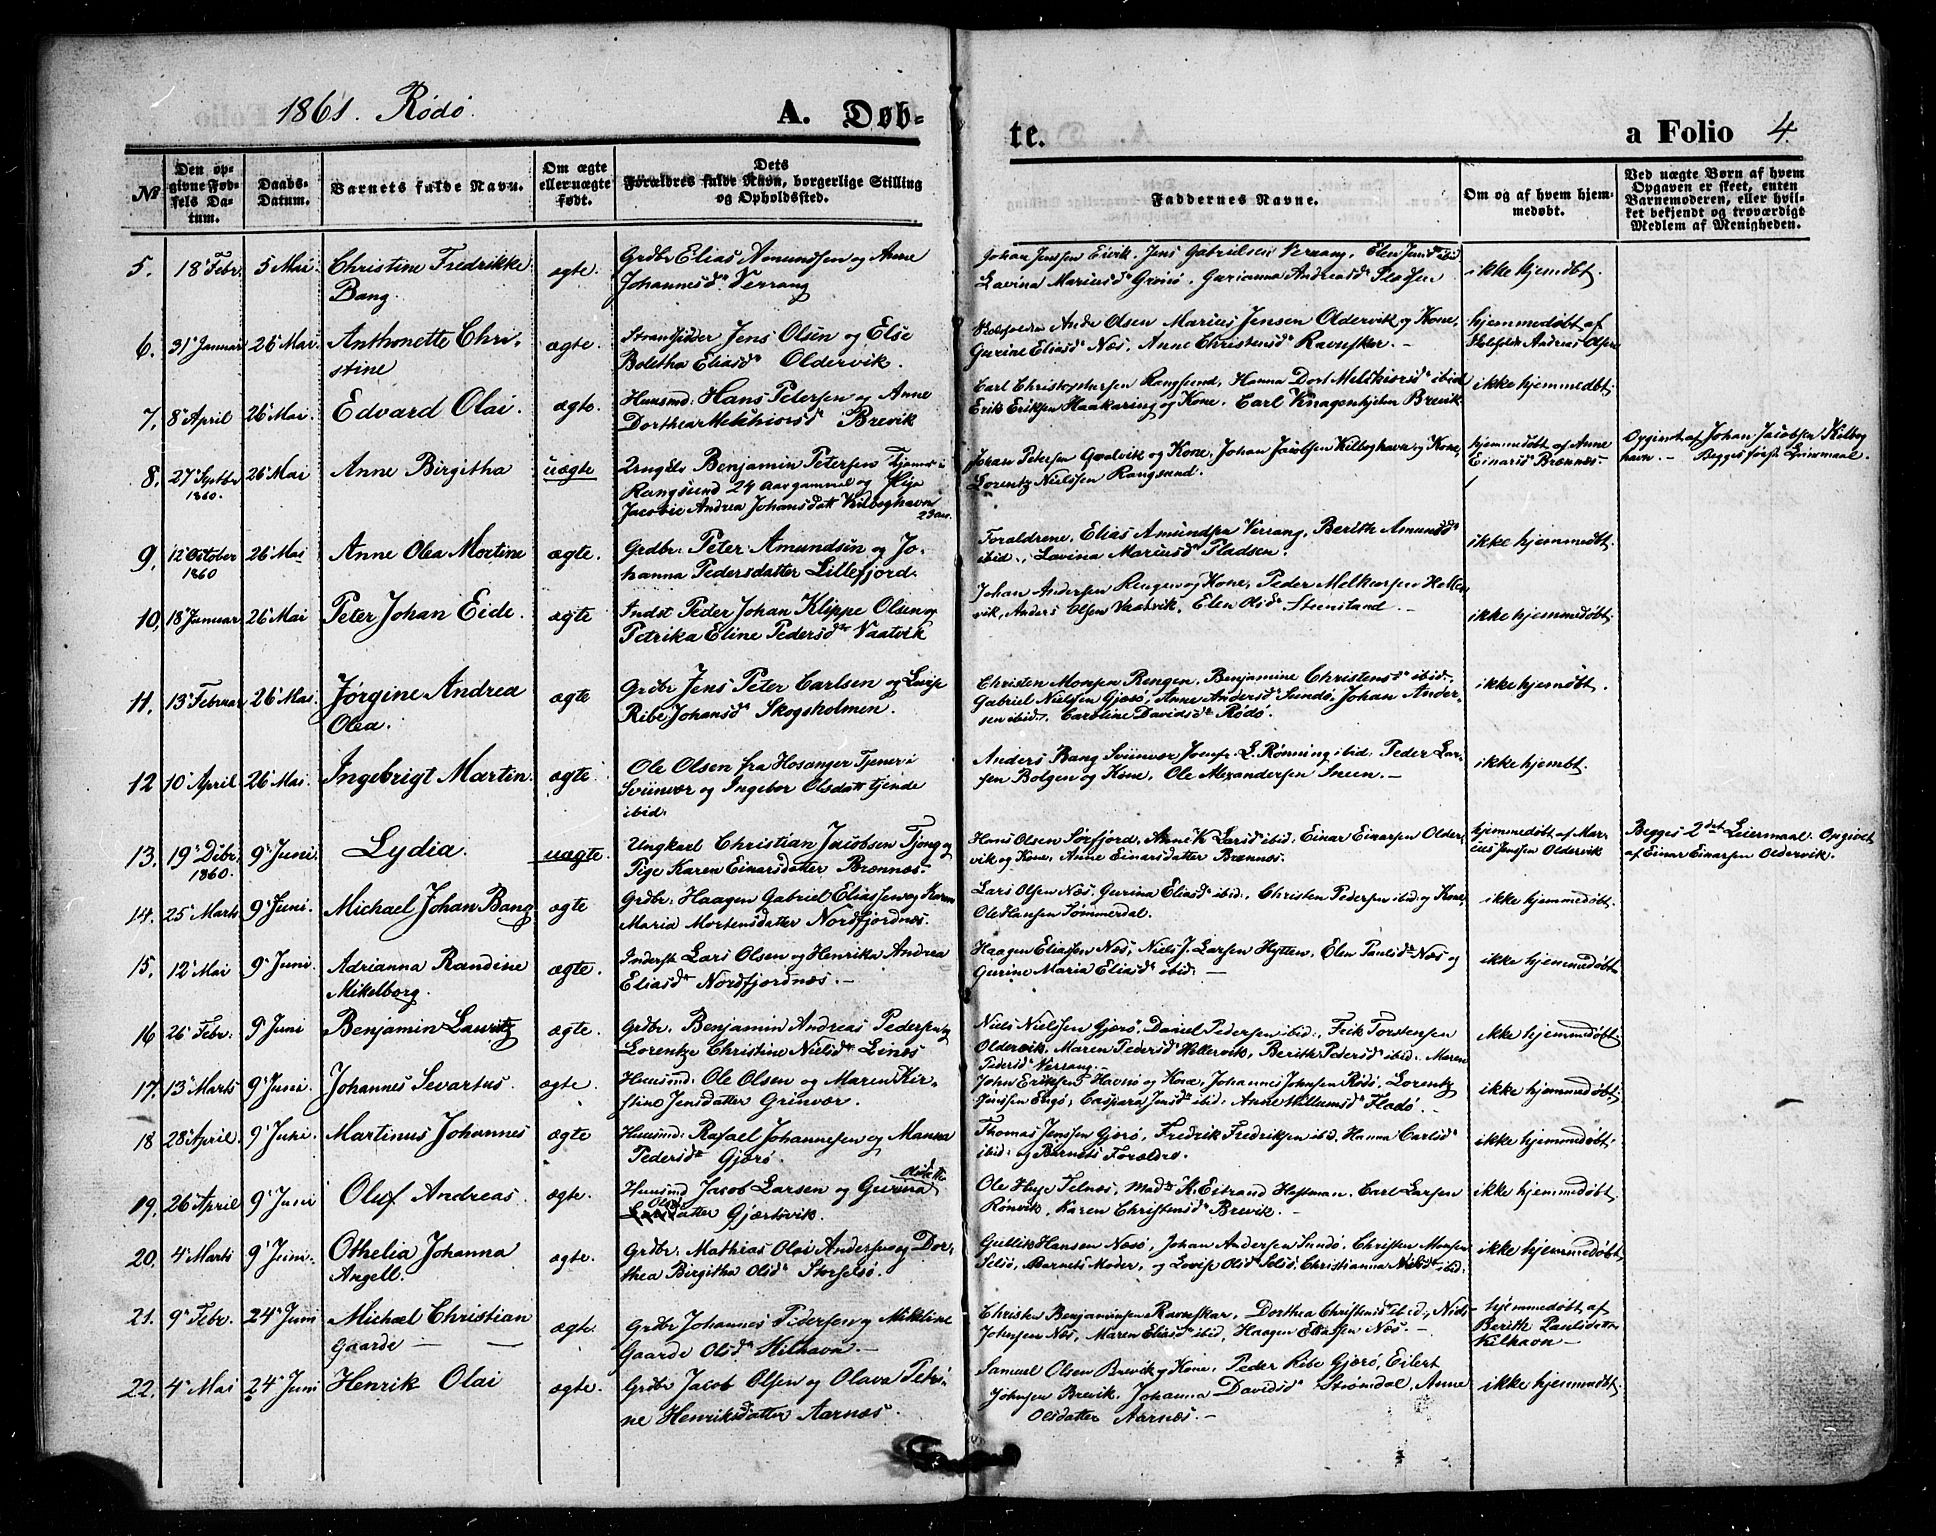 1861. Rödö.
A. Døb-
te.
a Folio 4.
No
Den op-
givne Fød-
sels Da-
tum.
Daabs-
Datum.
Barnets fulde Navn.
Om ægte
eller uægte
født.
Dets
Forældres fulde Navn, borgerlige Stilling
og Opholdssted.
Faddernes Navne.
Om og af hvem hjem-
medøbt.
Ved uægte Børn af hvem
Opgaven er skeet, enten
Barnemoderen, eller hvil-
ket bekjendt og troværdigt
Medlem af Menigheden.
5. 18 Febr. 5 Mai Christine Fredrikke
Bang.
ægte.
Grdbr Elias Amundsen og Anne
Johannesd. Verrang
Johan Jenssen Eivik. Jens Gabrielsen Verrang, Elen Jensd ibid
Lavina Mariusd Grönö, Gurianna Andreasd Pladsen
ikke hjemdöbt.
6. 31 Januar 26 Mai Anthonette Chri-
stine
ægte.
Strandsidder Jens Olsen og Else
Bolitha Eliasd Oldervik.
Andr Olsen Marius Jensen Oldervik og Kone,
Gurine Eliasd Næs, Anne Christensd Ravnskar. -
hjemmedöbt af
Andreas Olsen
7. 8 April 26 Mai Edvard Olai.
ægte.
Huusmd: Hans Petersen og Anne
Dorthea Melchiorsd Brevik
Carl Christophersen Rangsund, Hanna Dort Melkiorsd ibid
Erik Eriksen Haakaring og Kone. Carl Knagenhjelm Brevik
ikke hjemmedbt.
8. 27 Septbr
1860.
26 Mai Anne Birgitha
uægte
Ungkls Benjamin Petersen Tjener i
Rangsund 24 Aar gammel og Pige
Jacobie Andrea Johansdatt Kilboghavn
23 aar.
Johan Petersen Gaalvik og Kone, Johan Jacobsen Kilboghavn og Kone,
Lorentz Nielssen Rangsund.
hjemmedöbt af Anne
Einarsd Brænnæs.
Opgivet af Johan Jacobsen Kilbog
havn. - Begges første Leiermaal.
9. 12 October
1860
26 Mai Anne Olea Martine
ægte.
Grdbr: Peter Amundsen og Jo-
hanna Pedersdatter Lillefjord.
Foraldrene, Elias Amundsen Verrang, Berith Amundsd
ibid., Lavina Mariusd Pladsen.
ikke hjemmedöbt.
10. 18 Januar 26 Mai Peter Johan Eide.
ægte
Indst Peder Johan Klippe Olsen og
Petrika Eline Pedersd Vaatvik
Johan Andersen Rengen og Kone, Peder Melkiorsen Heller-
vik, Anders Olsen Vaatvik, Elen Olsd Steensland. -
ikke hjemmedöbt.
11. 13 Februar 26 Mai Jørgine Andrea
Olea.
ægte
Grdbr Jens Peter Carlsen og Lovise
Ribe Johansd Skogsholmen.
Christen Monsen Rengen. Benjamine Christensd ibid.
Gabriel Nielsen Gjærö, Anne Andersd Sundö, Johan Ander-
sen ibid., Caroline Davidsd Rödö.
ikke hjemöbt.
12 10 April 26 Mai. Ingebrigt Martin.
ægte.
Ole Olsen fra Hosanger Tjener i
Svinvær og Ingebor Olsdatt tjende
ibid.
Anders Bang Svinvær Jomfr. L. Rønning ibid. Peder Lar-
sen Bolgen og Kone, Ole Alexandersen Sneen. -
ikke hjembt.
13. 19 Debr.
1860.
9 Juni. Lydia.
uægte.
Ungkarl Christian Jacobsen Tjong og
Pige Karen Einarsdatter Brænnæs.
Hans Olsen Sörfjord, Anne K Larsd ibid, Einar Einarsen Older-
vik og Kone, Anne Einarsdatter Brænnæs.
hjemmedöbt af Mar-
ius Jenssen Oldervik
Begges 2det Leiermaal. Opgivet
af Einar Einarsen Oldervik.
14. 25 Marts 9 Juni. Michael Johan Bang
ægte
Grdbr: Haagen Gabriel Eliassen og Karen
Maria Mortensdatter Nordfjordnæs.
Lars Olsen Næs, Gurina Eliasd ibid., Christen Pedersen ibid: og Kone,
Ole Hansen Sømmerdal.
ikke hjemmedöbt.
15. 12 Mai 9 Juni. Adrianna Randine
Mikelborg.
ægte.
Inderst Lars Olsen og Henrika Andrea
Eliasd Nordfjordnæs. -
Haagen Eliassen Næs, Niels J. Larsen Hytten, Elen Paulsd Næs og
Gurine Maria Eliasd ibid: -
ikke hjemmedöbt.
16 26 Febr. 9 Juni Benjamin Lauritz
ægte.
Grdbr. Benjamin Andreas Pedersen og
Lorentze Christine Nielsd Linæs
Niels Nielssen Gjærö, Daniel Pedersen ibid:, Erik Torstensen
Oldervik, Maren Pedersd Hellervik, Berith Pedersd ibid: Maren
Pedersd Verrang. -
ikke hjemmedöbt.
17. 13 Marts 9 Juni. Johannes Sevartus.
ægte.
Huusmd: Ole Olsen og Maren Kir-
stine Jensdatter Grinvær.
John Eriksen Havnö og Kone, Johannes Johnsen Rödö, Lorentz
Jenssen Engö, Caspara Jensd ibid: Anne Willumsd Fladö. -
ikke hjemmedöbt
18 28 April. 9 Juni. Martinus Johannes
ægte
Huusmd: Rafael Johannesen og Manna
Pedersd Gjærö.
Thomas Jenssen Gjærö, Fredrik Fredriksen ibid, Hanna Carlsd
ibid: og Barnets Forældre.
ikke hjemmedöbt.
19. 26 April 9 Juni Oluf Andreas.
ægte.
Huusmd Jacob Larsen og Gurina
Olsdatter Gjærsvik.
Ole Huse Telnæs, Mads K. Eitrand Heftman, Carl Larsen
Rönvik, Karen Christensd Brevik.
ikke hjemmedöbt
20. 4 Marts 9 Juni. Othelia Johanna
Angell.
ægte.
Grdbr: Mathias Olai Andersen og Dor-
thea Birgitha Olsd Storselsö.
Gullik Hansen Næsö, Johan Andersen Sundö, Christen Monsen
Selsö, Barnets Moder, og Lovise Olsd Selsö, Christianna Nielsd ibid:
ikke hjemmedöbt,
21. 9 Febr. 24 Juni Michael Christian
Gaarde -
ægte.
Grdbr Johannes Pedersen og Mikiline
Gaarde Olsd Kilhavn. -
Christen Benjaminsen Ravnskar, Dorthea Christensd ibid:, Niels
Johnsen Næs, Maren Eliasd ibid, Haagen Eliassen Næs. -
hjemmedöbt af
Berithe Paulsdatter
Kilhavn -
22. 4 Mai 24 Juni Henrik Olai
ægte.
Grdbr Jacob Olsen og Olava Petri-
ne Henriksdatter Aarnæs.
Samuel Olsen Brevik og Kone, Peder Ribe Gjærö, Eilert
Johnsen Brevik, Johanna Davidsd Strømdal, Anne
Olsdatter Aarnæs. -
ikke hjemmedöbt